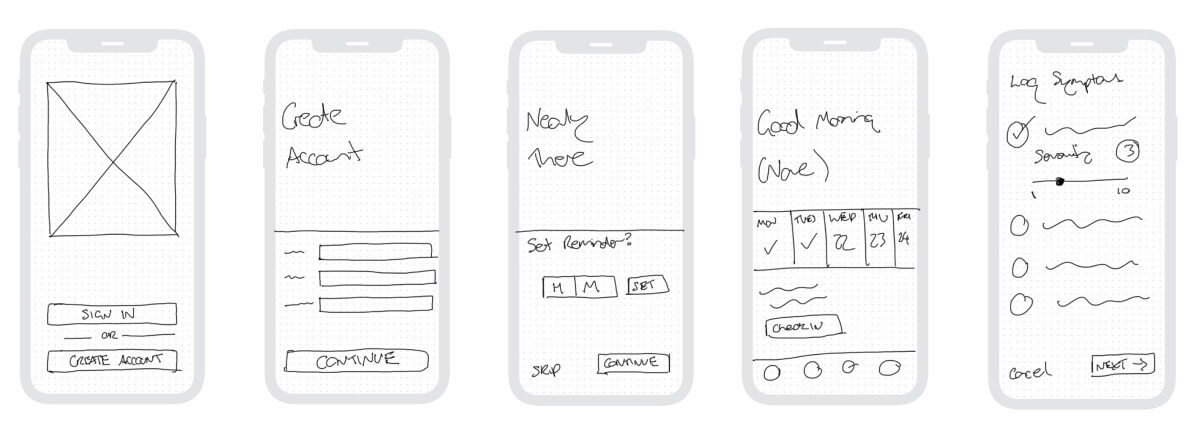 SIGN IN
OR
CREATE ACCOUNT
Create
Account
CONTINUE
Nearly
There
Set Reminder?
H M SET
SKIP CONTINUE
Good Morning
(Name)
MON TUES WED THU FRI
22 23 24
Check IN
Log Symptoms
Severity 3
1 10
cancel NEXT →